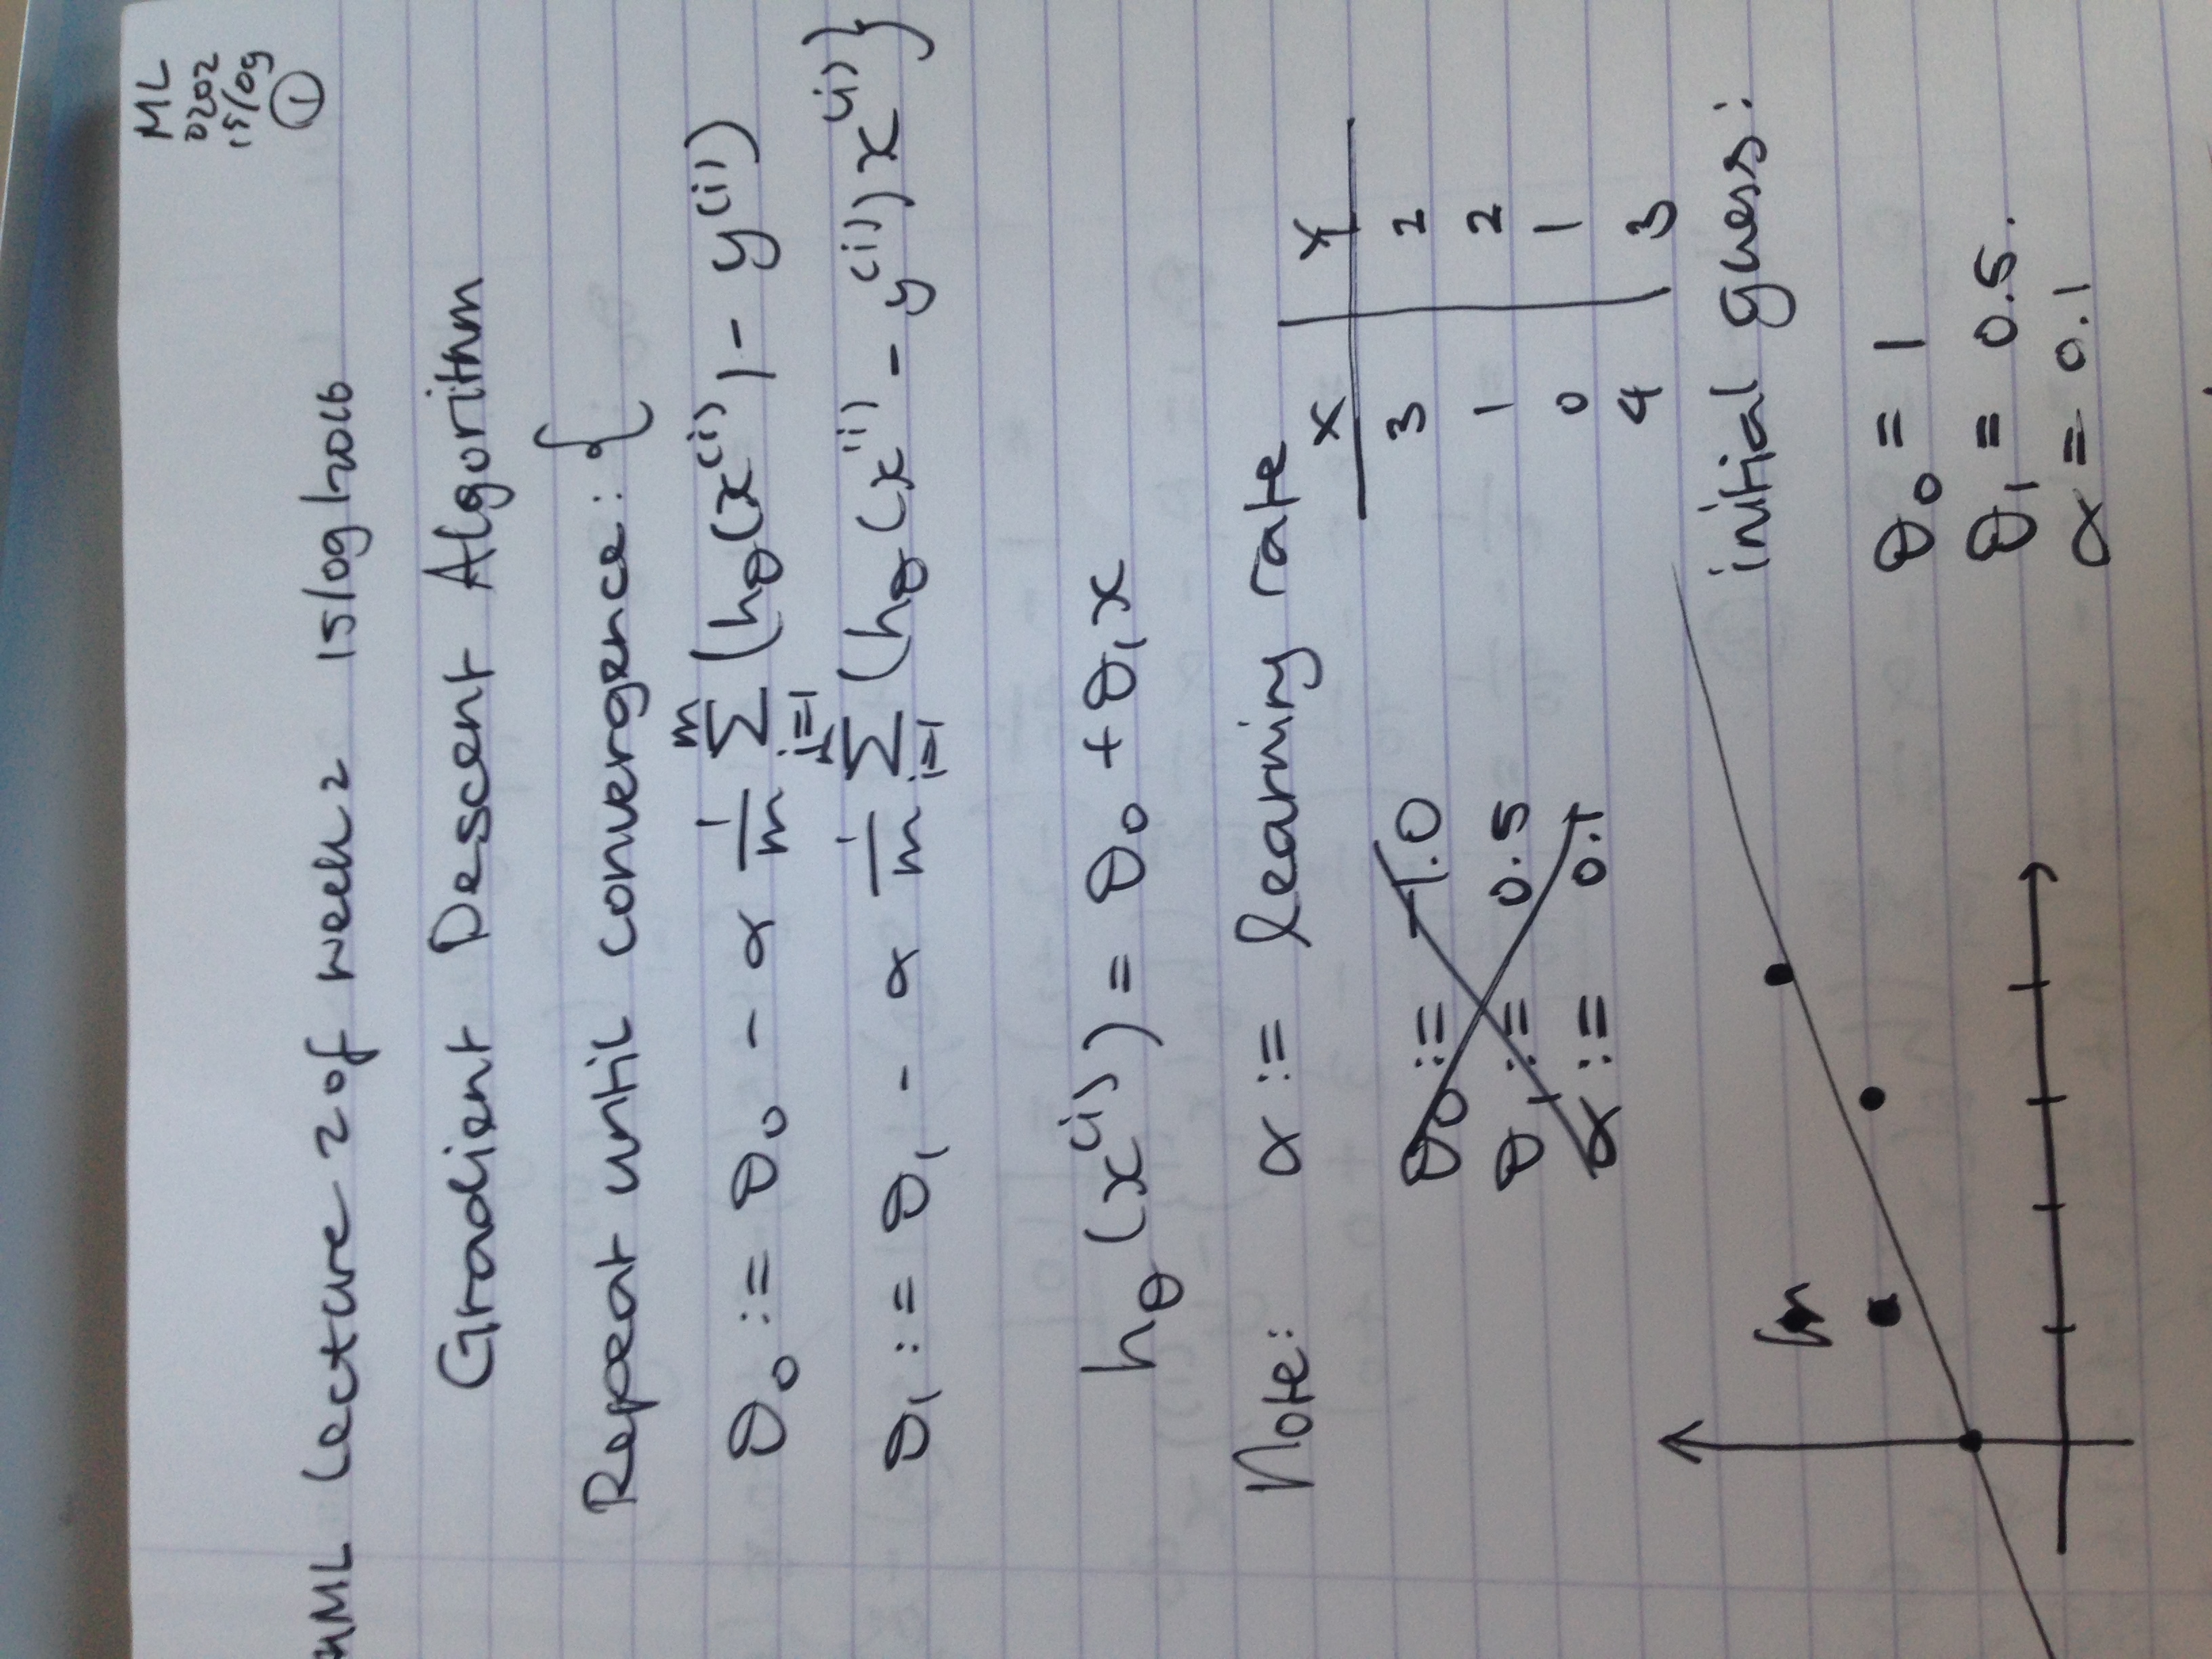 ML
0202
15/09
①
ML Lecture 2 of week 2 15/09/2016
Gradient Descent Algorithm
Repeat until convergence: {
θ₀ := θ₀ - α 1/m Σ_{i=1}^{m} (h_θ(x^(i)) - y^(i))
θ₁ := θ₁ - α 1/m Σ_{i=1} (h_θ(x^(i) - y^(i)) x^(i) }
h_θ(x^(i)) = θ₀ + θ₁x
Note: α := learning rate
x | y
3 | 2
1 | 2
0 | 1
4 | 3
θ₀ := -1.0
θ₁ := 0.5
α := 0.1
initial guess:
θ₀ = 1
θ₁ = 0.5.
α = 0.1